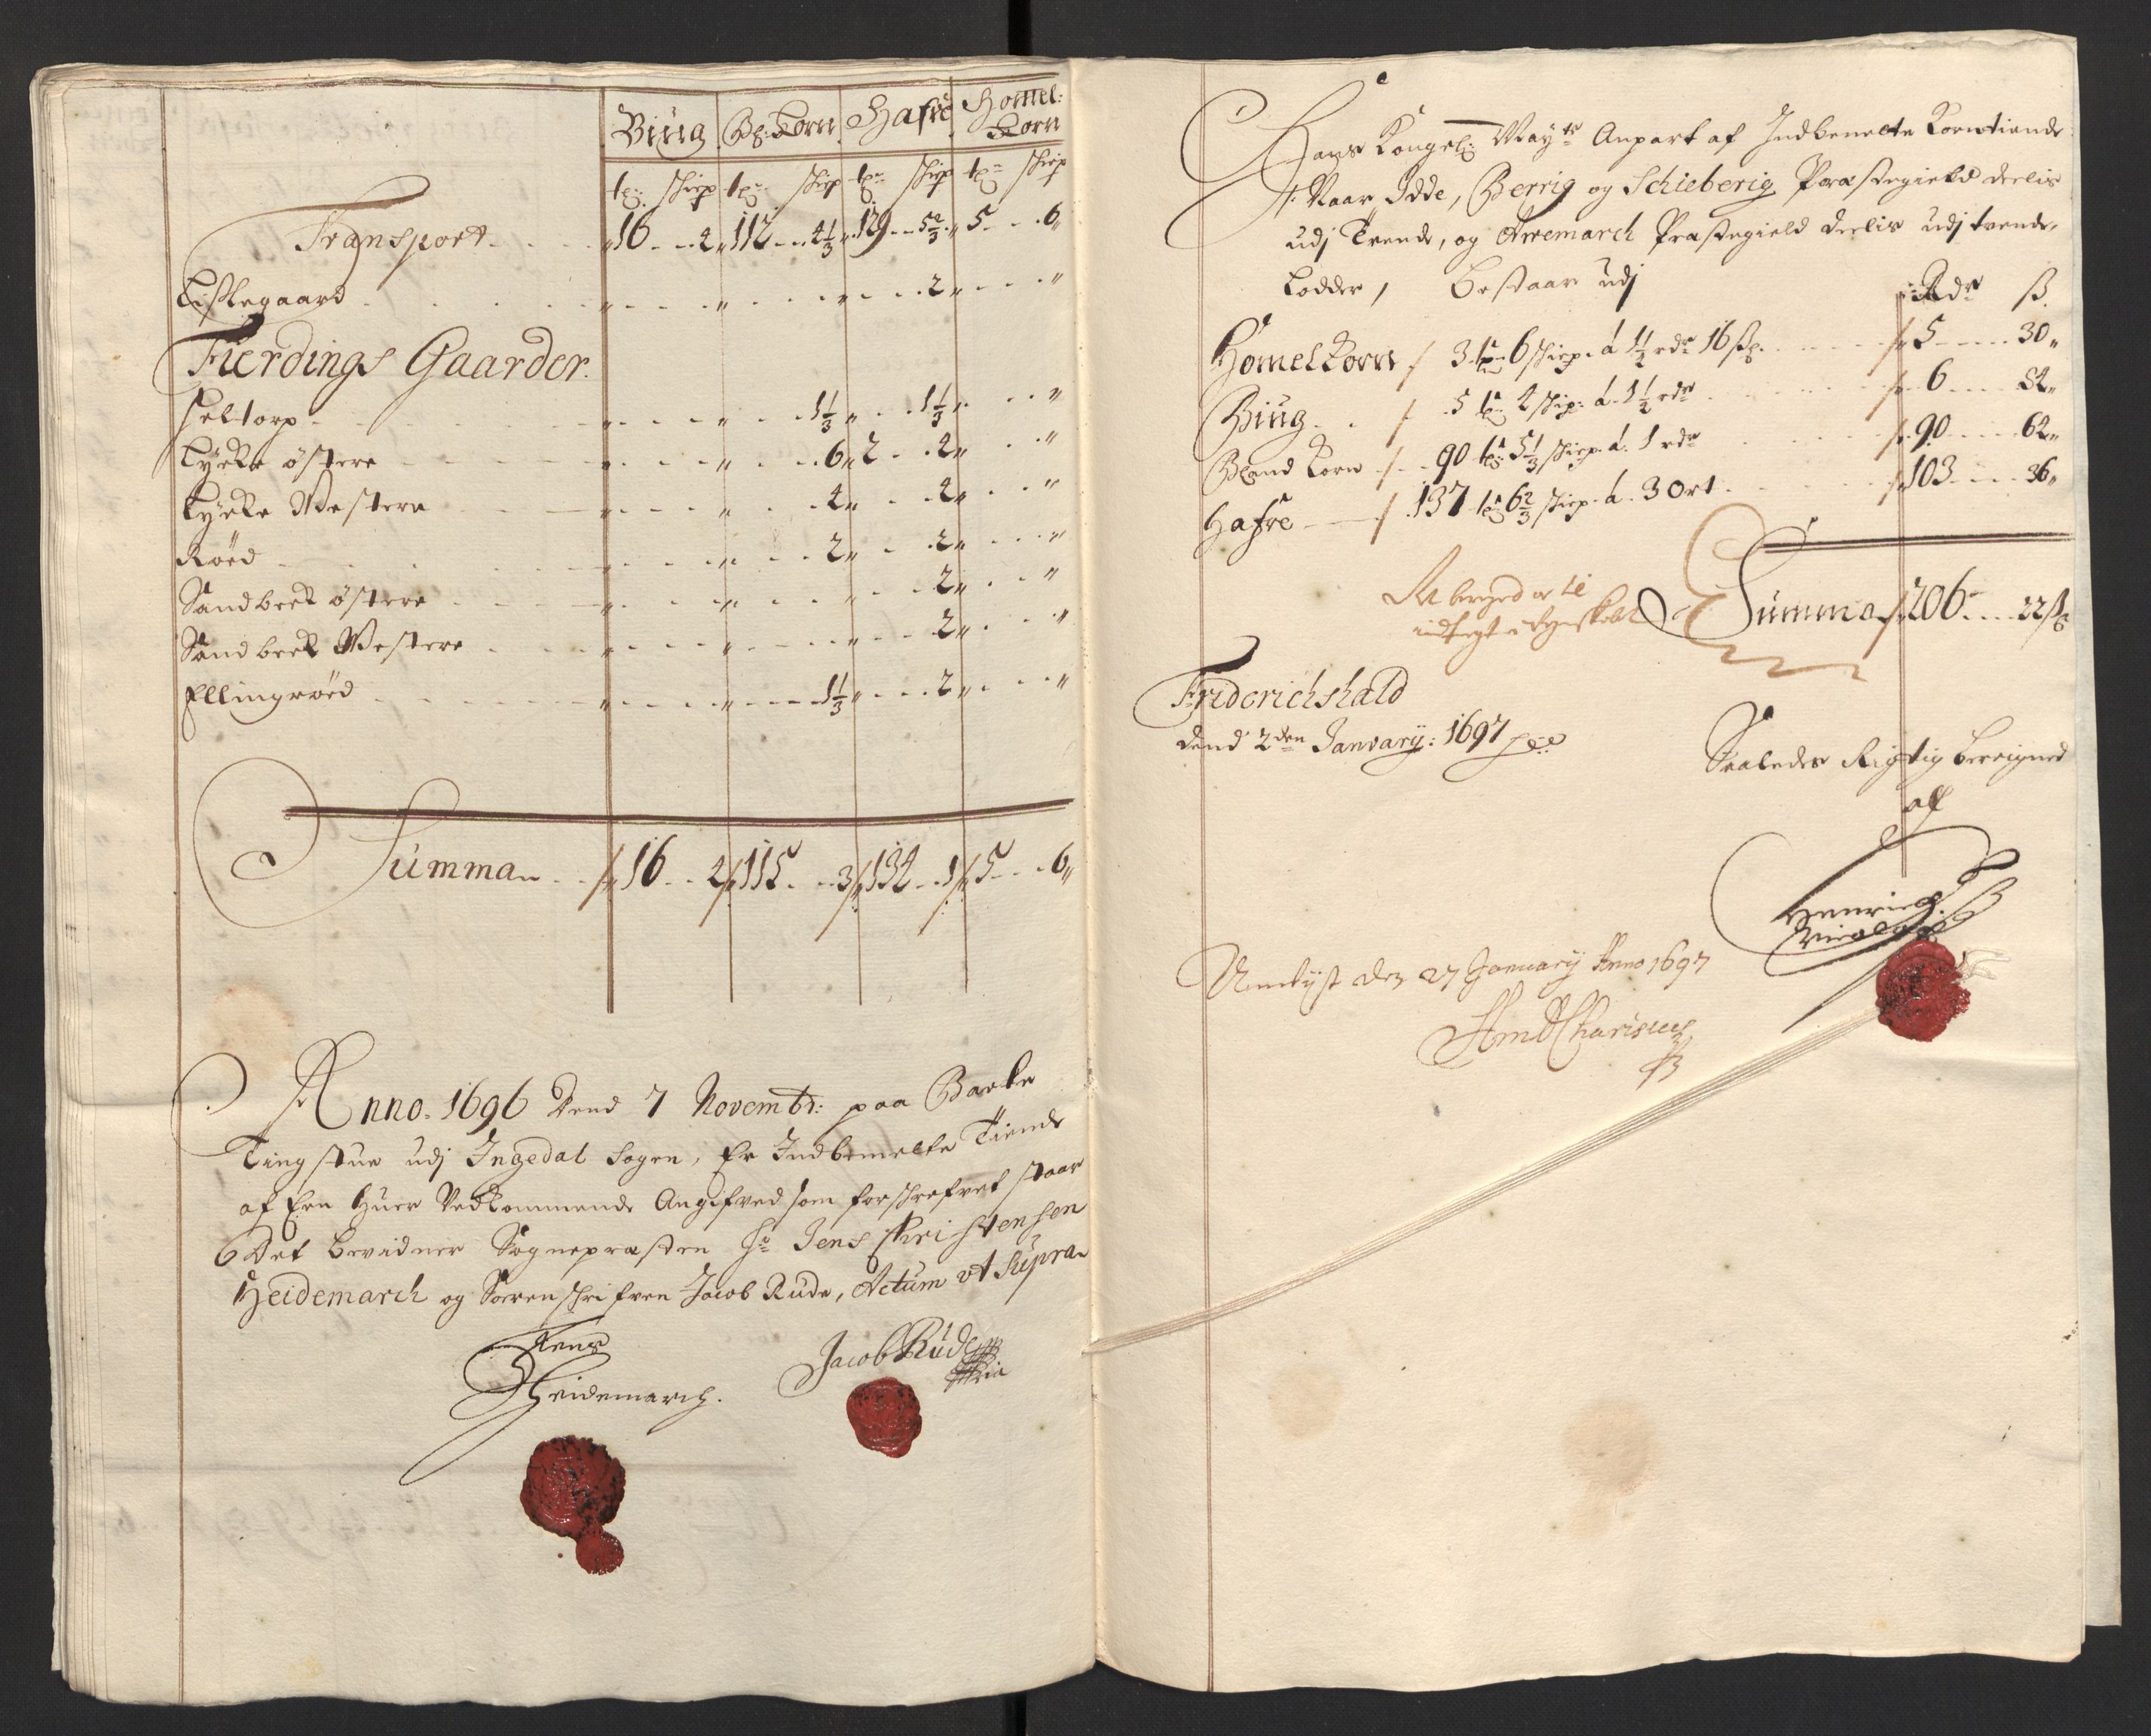 Biug Bl: Korn Hafre Homel: Korn
tr: schiep tr: schiep tr: schiep tr: schiep
Transport „16 2 „112 4 1/3 „129 5 2/3 „5 6„
Listegaard „ „ „ 2„ „
Fierdings Gaarder.
Heltorp „ „ 1 1/3 „ 1 1/3 „ „
Lycke østere „ „ 6„ 2 2„ „
Lycke Westere „ „ 4„ 2„ „
Røed „ „ 2„ 2„ „
Sandbeck østere „ „ „ 2„ „
Sandbeck Westere „ „ „ 2„ „
Ellingrøed „ „ 1 1/3 „ 2„ „
Summa 16 2 115 3 132 1 5 6„
Anno. 1696 Dend 7 Novembr: paa Backe
Tingstue udj Ingedal Sogen, Er Indbemelte Tiende
af Een Huer Vedkommende Angifved som forschrefvet staar
Det bevidner Sognepræsten Hr Jens Christensen
Heidemarch og Sorenschrifven Jacob Rude, Actum ut Supra
Jens
Heidemarch.
Jacob Rude
Hans Kongel: Mayts Anpart af Indbemelte Korntiende
Naar Idde, Berrig og Schieberig Præstegield deelis
udj Trende, og Arremarch Præstegield deelis udj tvende
Lodder, Bestaar udj Rdr ß.
Homelkorn 3 tr 6 schiep. á 1 1/2 rdr 16 ß. 5 30„
Biug 5 tr 2 schiep: á 1 1/2 rdr 6 84„
Bland Korn 90 tr 5 1/3 schiep. á. 1 rdr 90 62„
Hafre 137 tr 6 2/3 schiep. á. 3 ort 103 36„
Summa 206 22 ß
Friderichshald
dend 2den January: 1697
Saaledes Rigtig beregned
af
Henrich
den 27 January Anno 1697